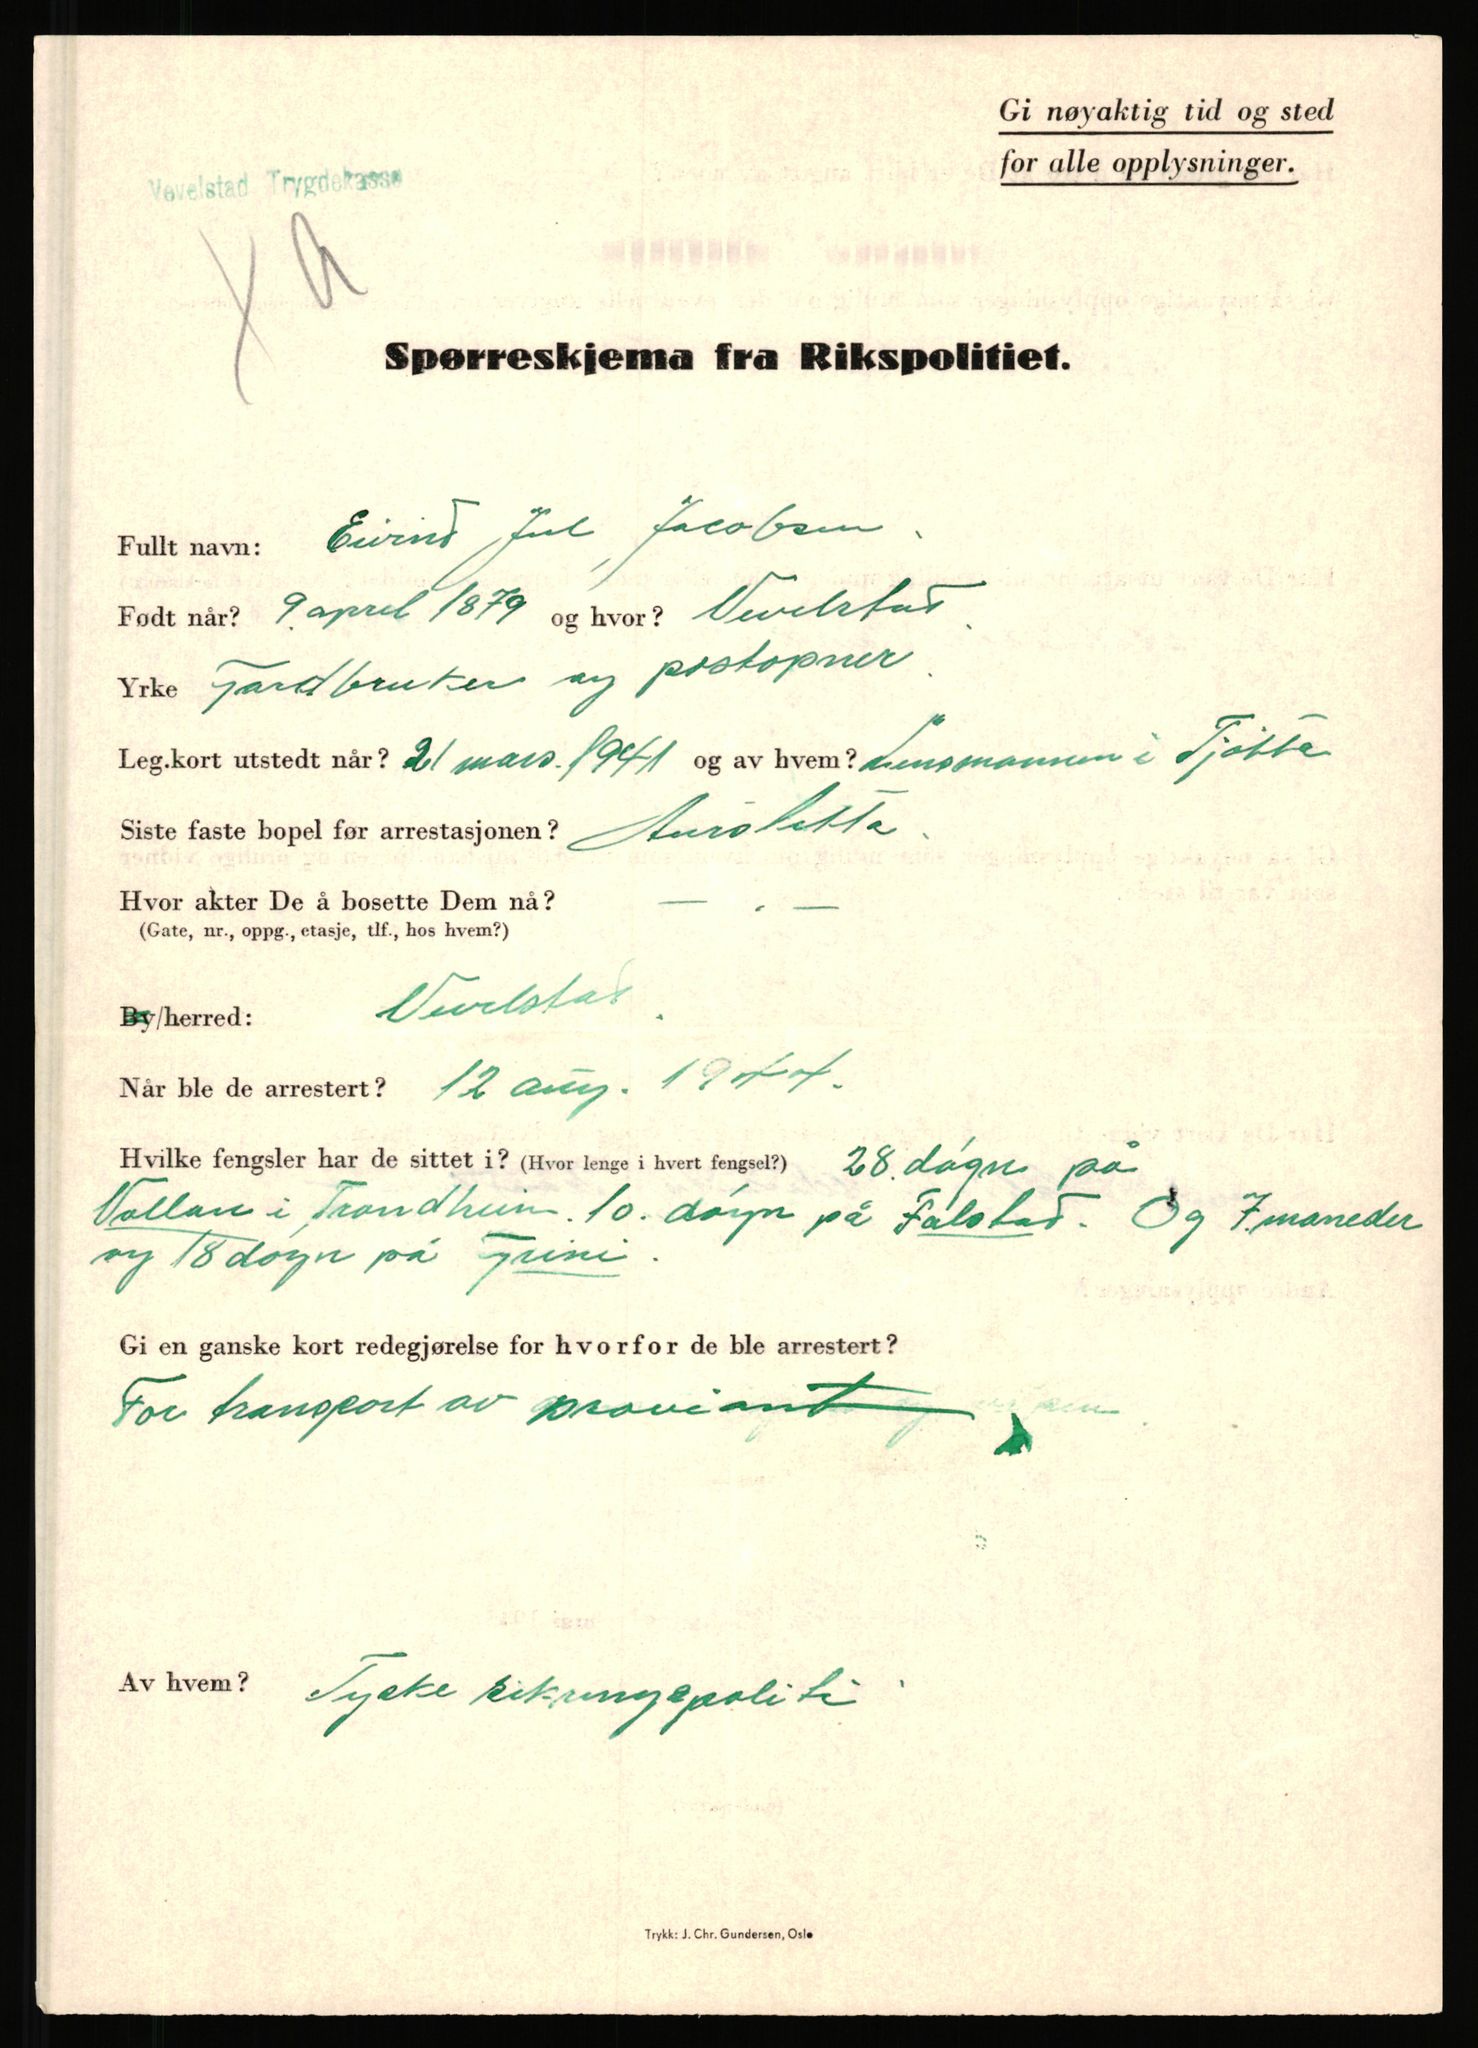 Gi nøyaktig tid og sted
for alle opplysninger.
Vevelstad Trygdekasse
Spørreskjema fra Rikspolitiet.
Fullt navn: Eivind Jul Jacobsen.
Født når? 9. april 1879 og hvor? Vevelstad.
Yrke Gardbruker og postopner.
Leg.kort utstedt når? 21 mars. 1941 og av hvem? Lensmannen i Tjötta
Siste faste bopel før arrestasjonen?
Hvor akter De å bosette Dem nå? — . —
(Gate, nr., oppg., etasje, tlf., hos hvem?)
By/herred: Vevelstad.
Når ble de arrestert? 12 aug. 1944.
Hvilke fengsler har de sittet i? (Hvor lenge i hvert fengsel?) 28. døgn på
Vollan i Trondheim. 10. døgn på Falstad. Og 7. maneder
og 18 døgn på Grini.
Gi en ganske kort redegjørelse for hvorfor de ble arrestert?
For transport av proviant
Av hvem? Tyske sikringspoliti
Trykk: J. Chr. Gundersen, Oslo